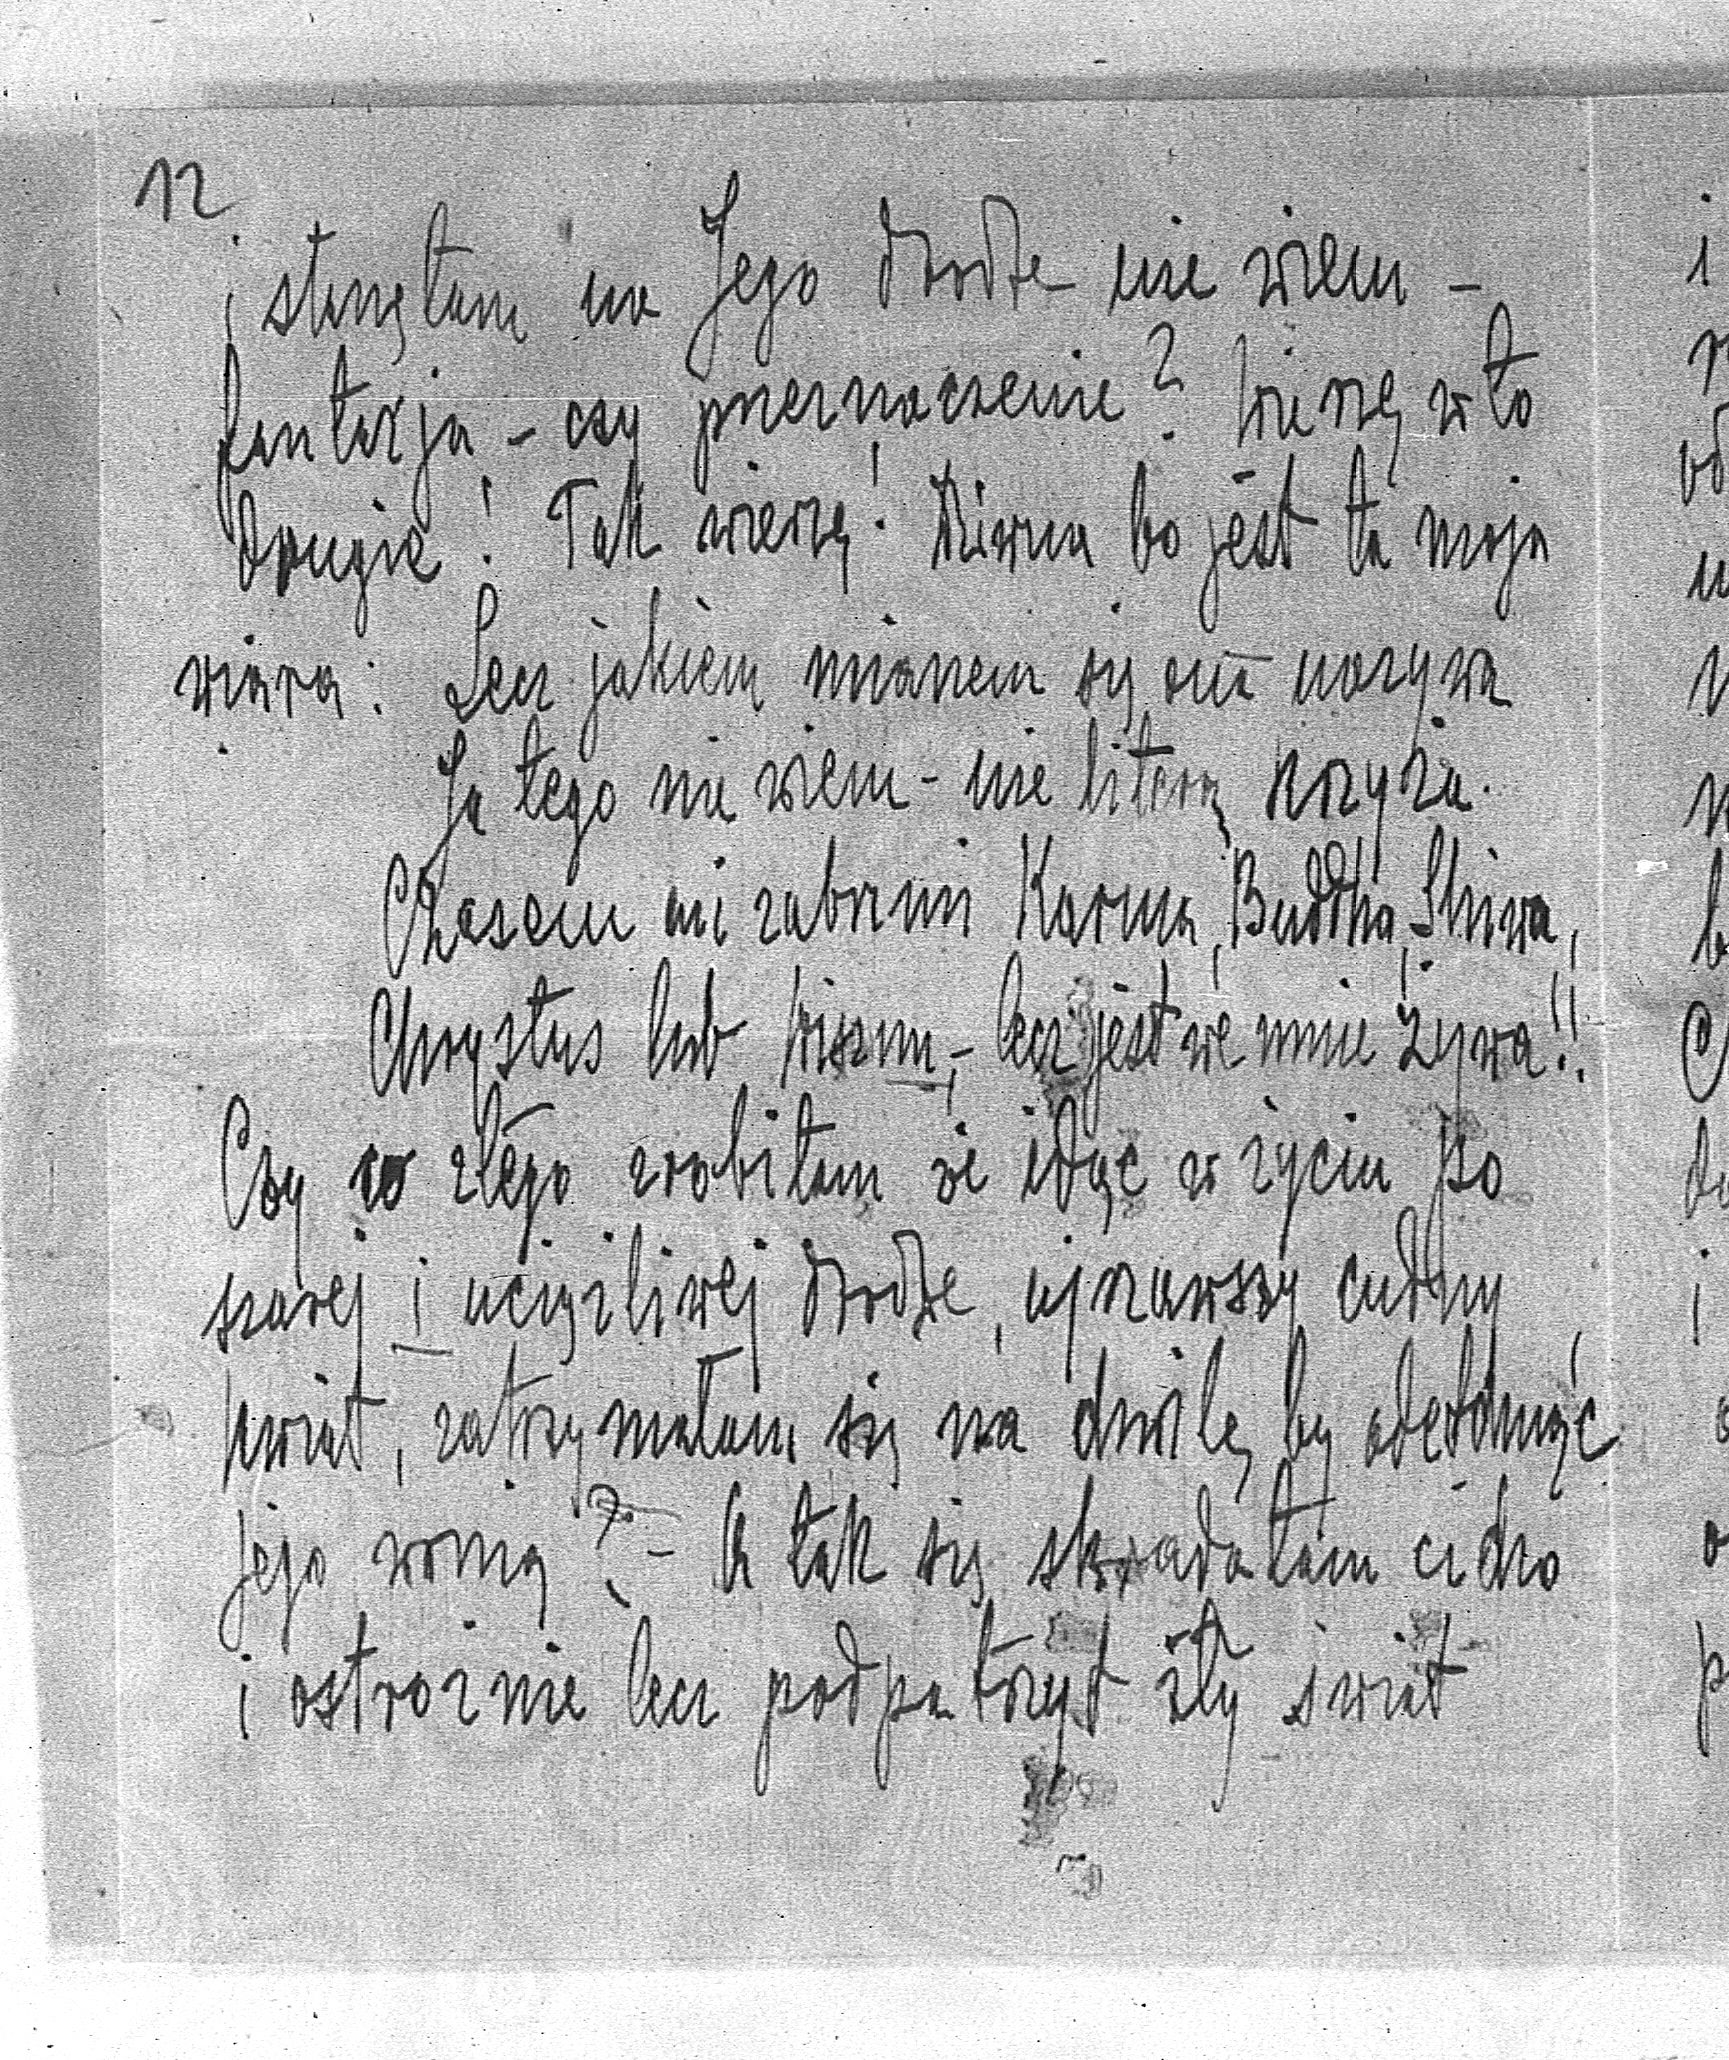 12
i stanęłam na Jego drodze nie wiem –
fantazja – czy przeznaczenie? Wierzę w to
drugie! Tak wierzę! Dziwna bo jest ta moja
wiara: Lecz jakiem mianem się ona nazywa
Ja tego nie wiem – nie literą krzyża.
Czasem mi zabrzmi Karma, Buddha, Shiwa,
Chrystus lub Wisznu, – lecz jest we mnie żywa!!
Czy co złego zrobiłam że idąc w życiu po
szarej i uciążliwej drodze, ujrzawszy cudny
kwiat, zatrzymałam się na chwilę, by odetchnąć
jego wonią? – A tak się skradałam cicho
i ostrożnie lecz podpatrzył zły świat